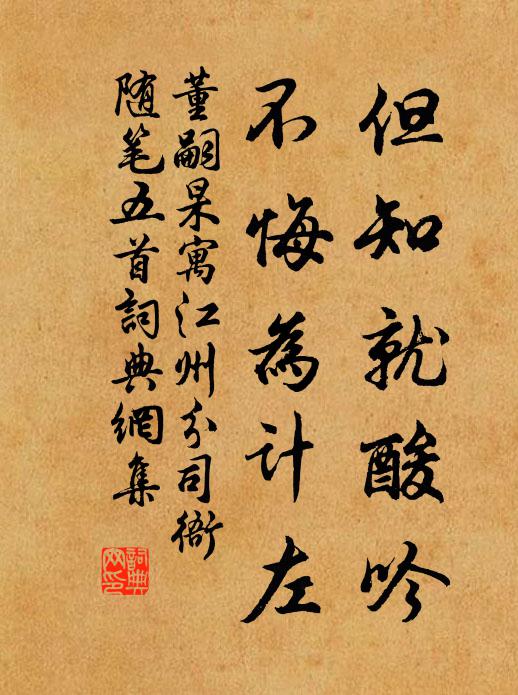 但知就酸吟
不悔為计左
董嗣杲寓江州分司衙
随笔五首詞典網集
詞典
网印